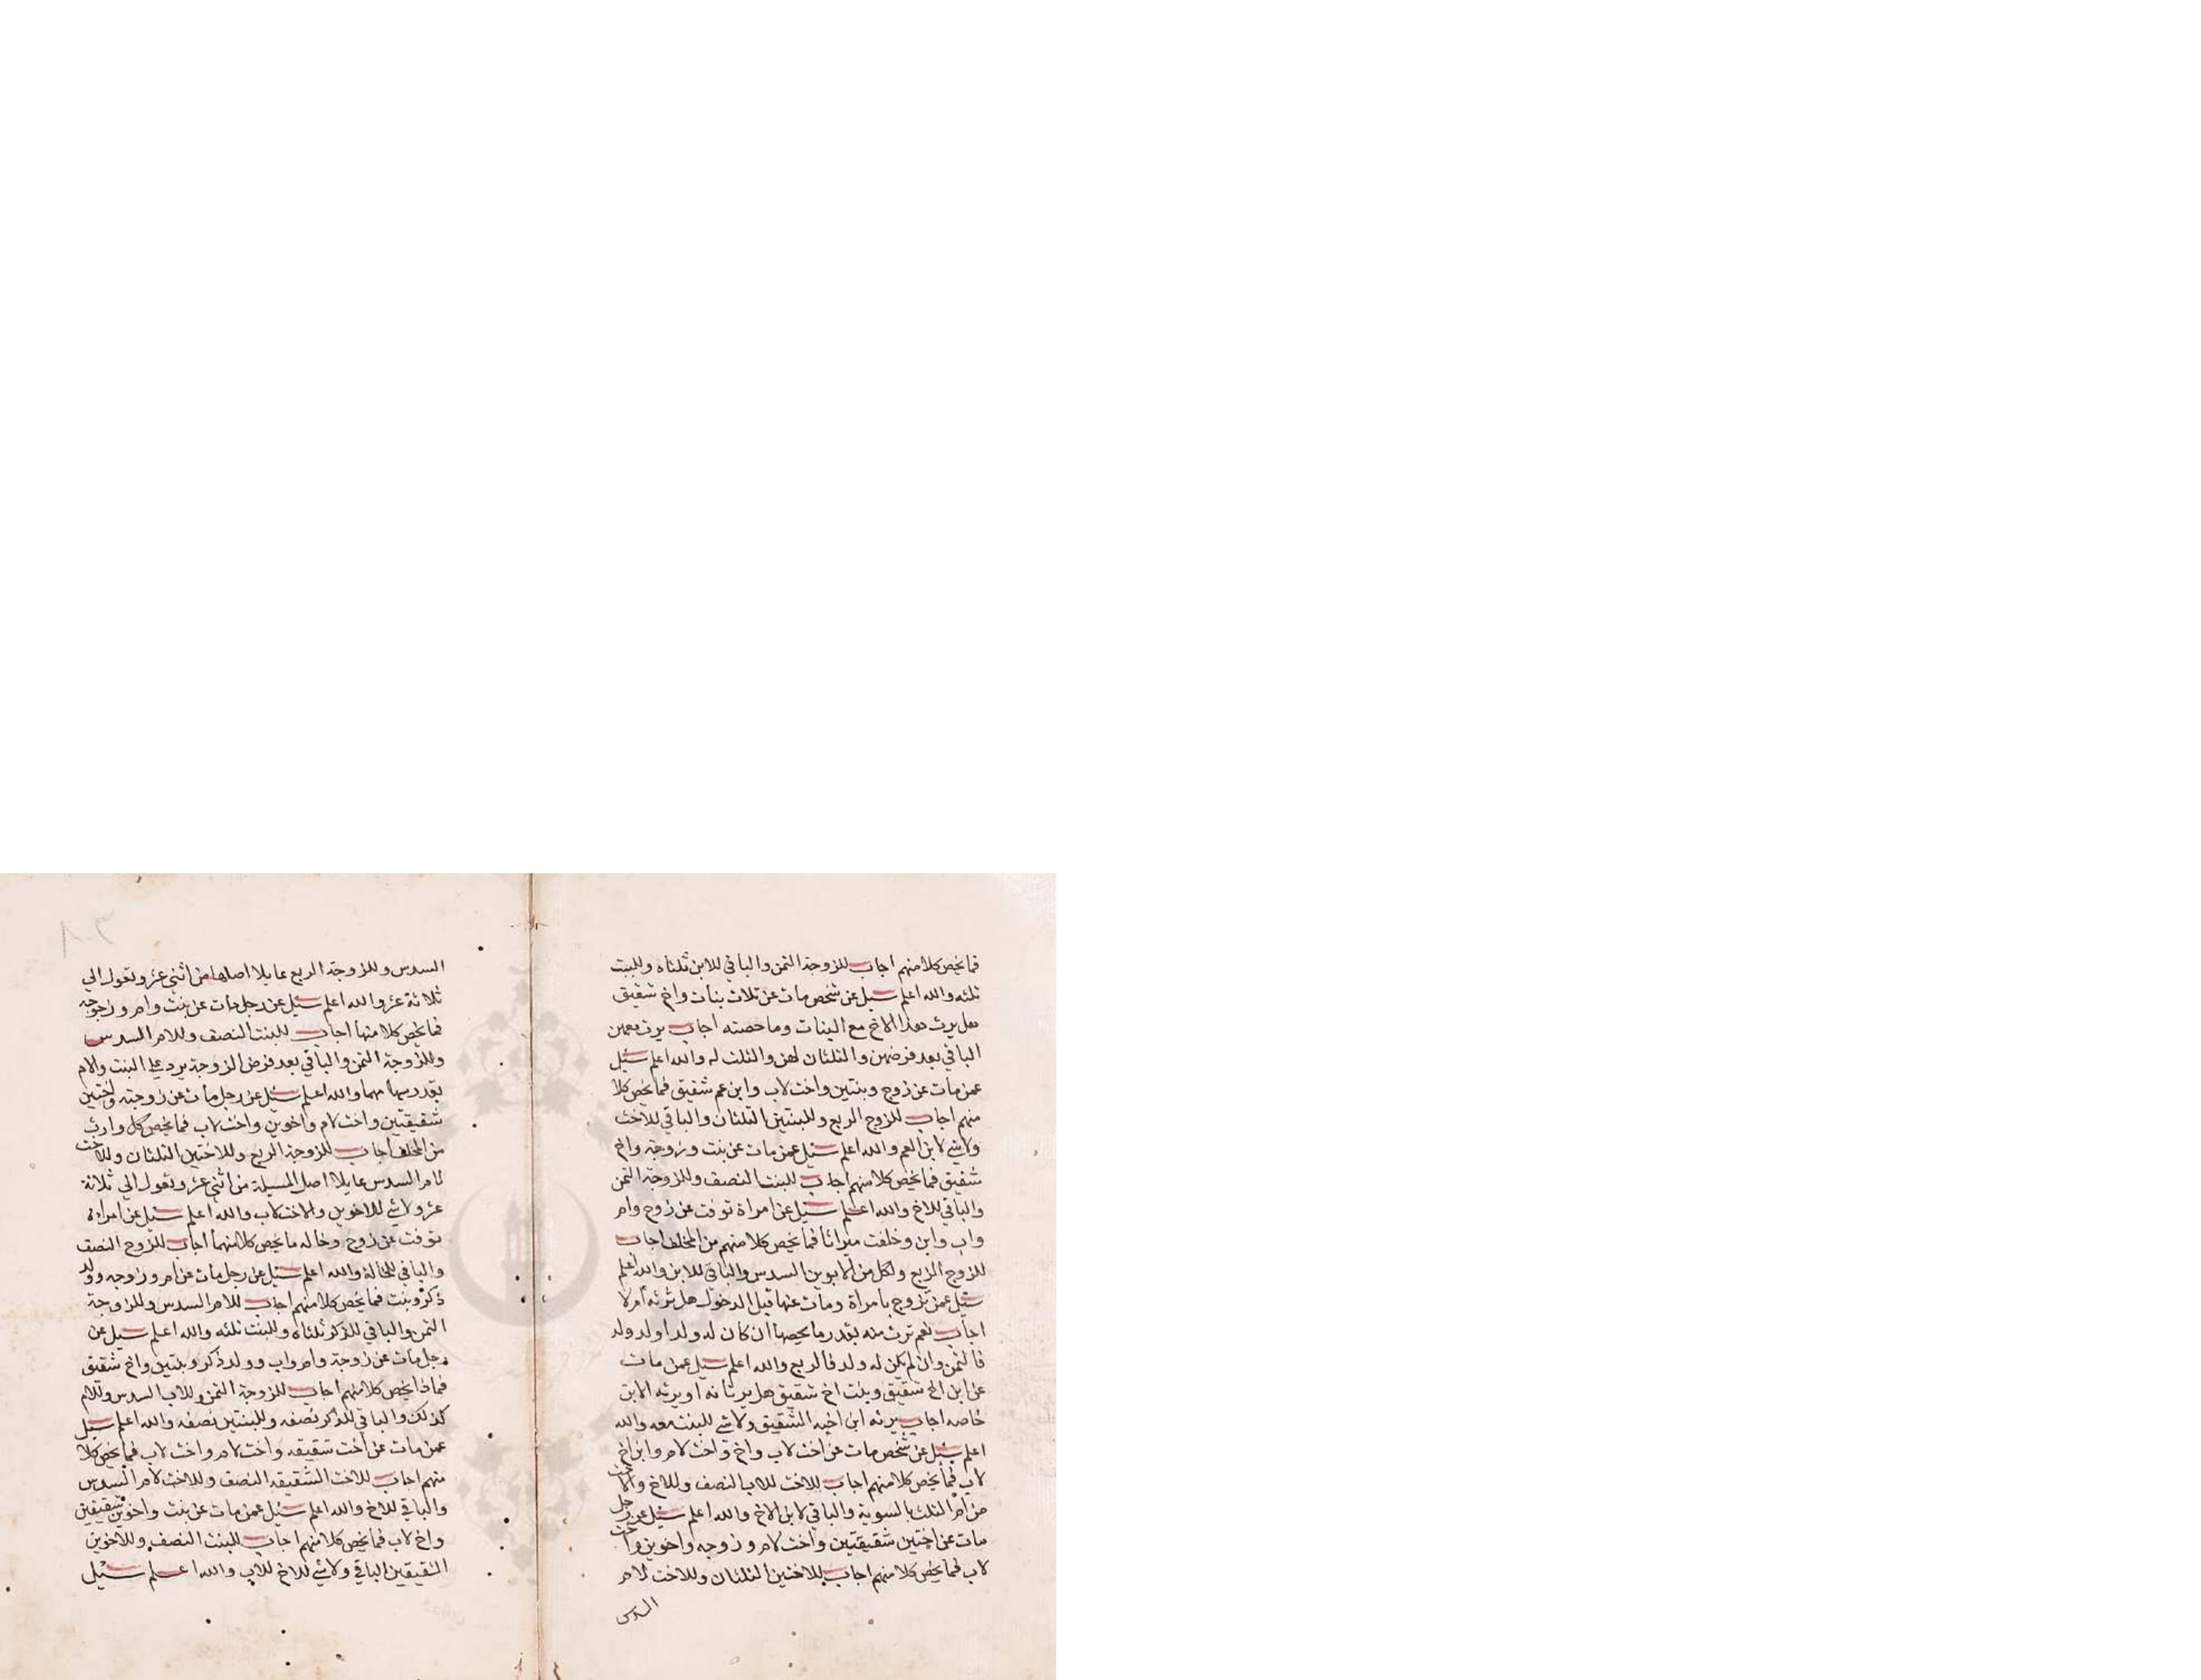 فما يخص كلا منهم اجاب للزوجة الثمن والباقي للابن ثلثاه وللبنت
ثلثه والله اعلم سيل عن شخص مات عن ثلاث بنات واخ شقيق
هل يرث هذا الاخ مع البنات وما حصته اجاب يرث معهن
الباقي بعد فرضهن والثلثان لهن والثلث له والله اعلم سيل
عمن مات عن زوج وبنتين واخت لاب وابن عم شقيق فما يخص كلا
منهم اجاب للزوج الربع وللبنتين الثلثان والباقي للاخت
ولا شي لابن العم والله اعلم سيل عمن مات عن بنت وزوجة واخ
شقيق فما يخص كلا منهم اجاب للبنت النصف وللزوجة الثمن
والباقي للاخ والله اعلم سيل عن امراة توفت عن زوج وام
واب وابن وخلفت ميراثا فما يخص كلا منهم من المخلف اجاب
للزوج الربع ولكل من الابوين السدس والباقي للابن والله اعلم
سيل عمن تزوج بامراة ومات عنها قبل الدخول هل ترثه ام لا
اجاب نعم ترث منه بقدر ما يخصها ان كان له ولد او ولد ولد
فالثمن وان لم يكن له ولد فالربع والله اعلم سيل عمن مات
عن ابن اخ شقيق وبنت اخ شقيق هل يرثانه او يرثه الابن
خاصه اجاب يرثه ابن اخيه الشقيق ولا شي للبنت معه والله
اعلم سيل عن شخص مات عن اخت لاب واخ واخت لام وابن اخ
لاب فما يخص كلا منهم اجاب للاخت للاب النصف وللاخ والاخت
من ام الثلث بالسوية والباقي لابن الاخ والله اعلم سيل عن رجل
مات عن اختين شقيقتين واخت لام وزوجه واخوين واخت
لاب فما يخص كلا منهم اجاب للاختين الثلثان وللاخت للام
السدس
السدس وللزوجة الربع عايلا اصلها من اثني عشر وتعول الي
ثلاثة عشر والله اعلم سيل عن رجل مات عن بنت وام وزوجه
فما يخص كلا منها اجاب للبنت النصف وللام السدس
وللزوجة الثمن والباقي بعد فرض الزوجة يرد علي البنت والام
بقدر سهامهما والله اعلم سيل عن رجل مات عن زوجته واختين
شقيقتين واخت لام واخوين واخت لاب فما يخص كل وارث
من المخلف اجاب للزوجة الربع وللاختين الثلثان وللاخت
للام السدس عايلا اصل المسيلة من اثني عشر وتعول الي ثلاثة
عشر ولا شي للاخوين والاخت لاب والله اعلم سيل عن امراة
توفت عن زوج وخاله ما يخص كلا منهما اجاب للزوج النصف
والباقي للخالة والله اعلم سيل عن رجل مات عن ام وزوجه وولد
ذكر وبنت فما يخص كلا منهم اجاب للام السدس وللزوجة
الثمن والباقي للذكر ثلثاه وللبنت ثلثه والله اعلم سيل عن
رجل مات عن زوجة وام واب وولد ذكر وبنتين واخ شقيق
فماذا يخص كلا منهم اجاب للزوجة الثمن وللاب السدس وللام
كذلك والباقي للذكر نصفه وللبنتين نصفه والله اعلم سيل
عمن مات عن اخت شقيقه واخت لام واخت لاب فما يخص كلا
منهم اجاب للاخت الشقيقه النصف وللاخت لام السدس
والباقي للاخ والله اعلم سيل عمن مات عن بنت واخوين شقيقين
واخ لاب فما يخص كلا منهم اجاب للبنت النصف وللاخوين
الشقيقين الباقي ولا شي للاخ للاب والله اعلم سيل